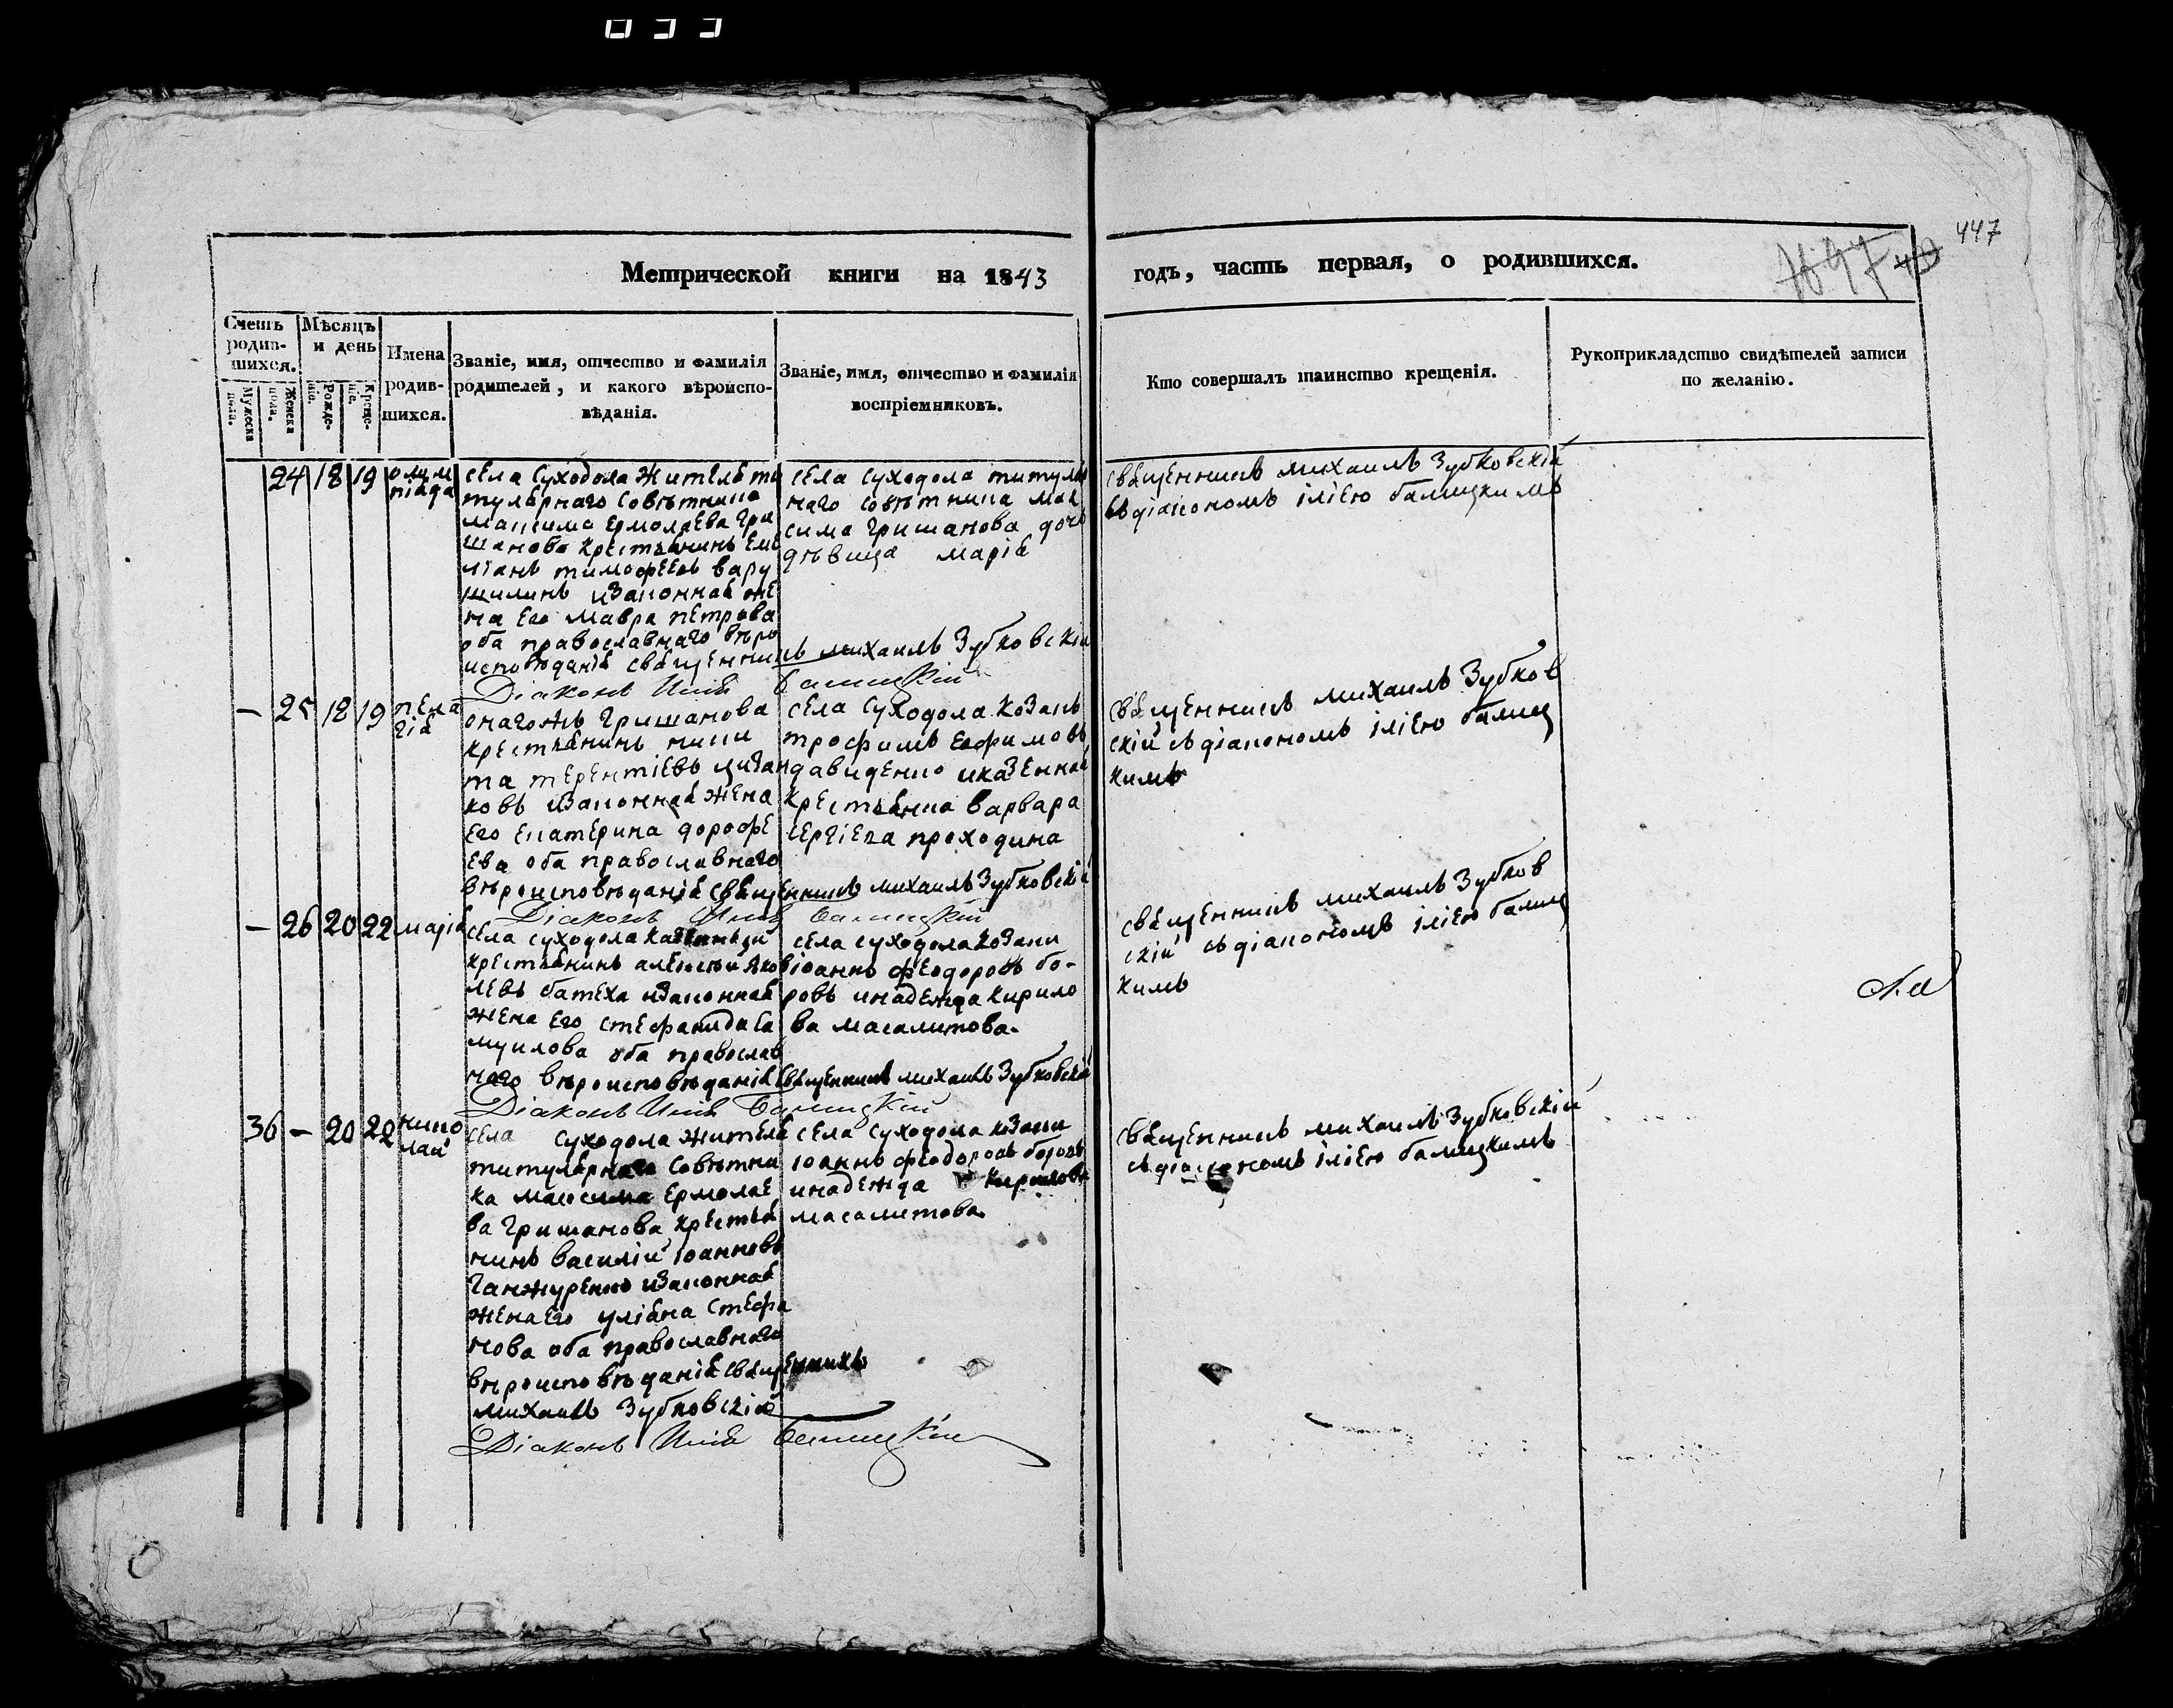 033
447
Метрической книги на 1843
годъ, часть первая, о родившихся.
Счетъ родив-шихся.
Мужеска пола.
Женска пола.
Мѣсяцъ и день
Рожде-нія.
Креще-нія.
Имена родив-шихся.
Званіе, имя, отчество и фамилія
родителей, и какого вѣроиспо-
вѣданія.
Званіе, имя, отчество и фамилія
воспріемниковъ.
Кто совершалъ таинство крещенія.
Рукоприкладство свидѣтелей записи
по желанію.
24 18 19 олим
піада
села Суходола жителя ти
тулярнаго совѣтника
максима Ермолаева Гри
шанова крестьянинъ Еме
ліанъ тимофеевъ вару
шилинъ изаконная же
на его мавра петрова
оба православнаго вѣро
исповѣданія священникъ михаилъ Зубковскій
Діаконъ Илія Балицкій
села суходола титуляр
наго совѣтника мак
сима гришанова дочь
дѣвица марія
священникъ михаилъ Зубковскій
съ діакономъ іліею балицкимъ
— 25 18 19 пела
гія
онагожъ гришанова
крестьянинъ ники
та терентіевъ циган
ковъ изаконная жена
его екатерина дорофе
ева оба православнаго
вѣроисповѣданія священникъ михаилъ Зубковскій
Діаконъ Илія Балицкій
села Суходола козакъ
трофимъ Евфимовъ
давиденко иказенная
крестьянка варвара
сергіева проходина
священникъ михаилъ Зубков
скій съ діакономъ іліею балиц
кимъ
— 26 20 22 марія
села суходола казенный
крестьянинъ алексѣй Яков
левъ батеха изаконная
жена его стефанида са
муилова оба православ
наго вѣроисповѣданія священникъ михаилъ Зубковскій
Діаконъ Илія Балицкій
села суходола козакъ
іоаннъ феодоровъ бо-
ровъ инадежда кирило
ва масалитова.
священникъ михаилъ Зубков
скій съ діакономъ іліею балиц
кимъ
36 — 20 22 нико
лай
села суходола жителя
титулярнаго совѣтни
ка максима ермолае
ва гришанова крестья
нинъ василій іоанновъ
ганжуренко изаконная
жена его уліяна стефа
нова оба православнаго
вѣроисповѣданія священникъ
михаилъ Зубковскій
Діаконъ Илія Балицкій
села суходола козакъ
іоаннъ феодоровъ боровъ
инадежда кирилова
масалитова
священникъ михаилъ Зубковскій
съ діакономъ іліею балицкимъ